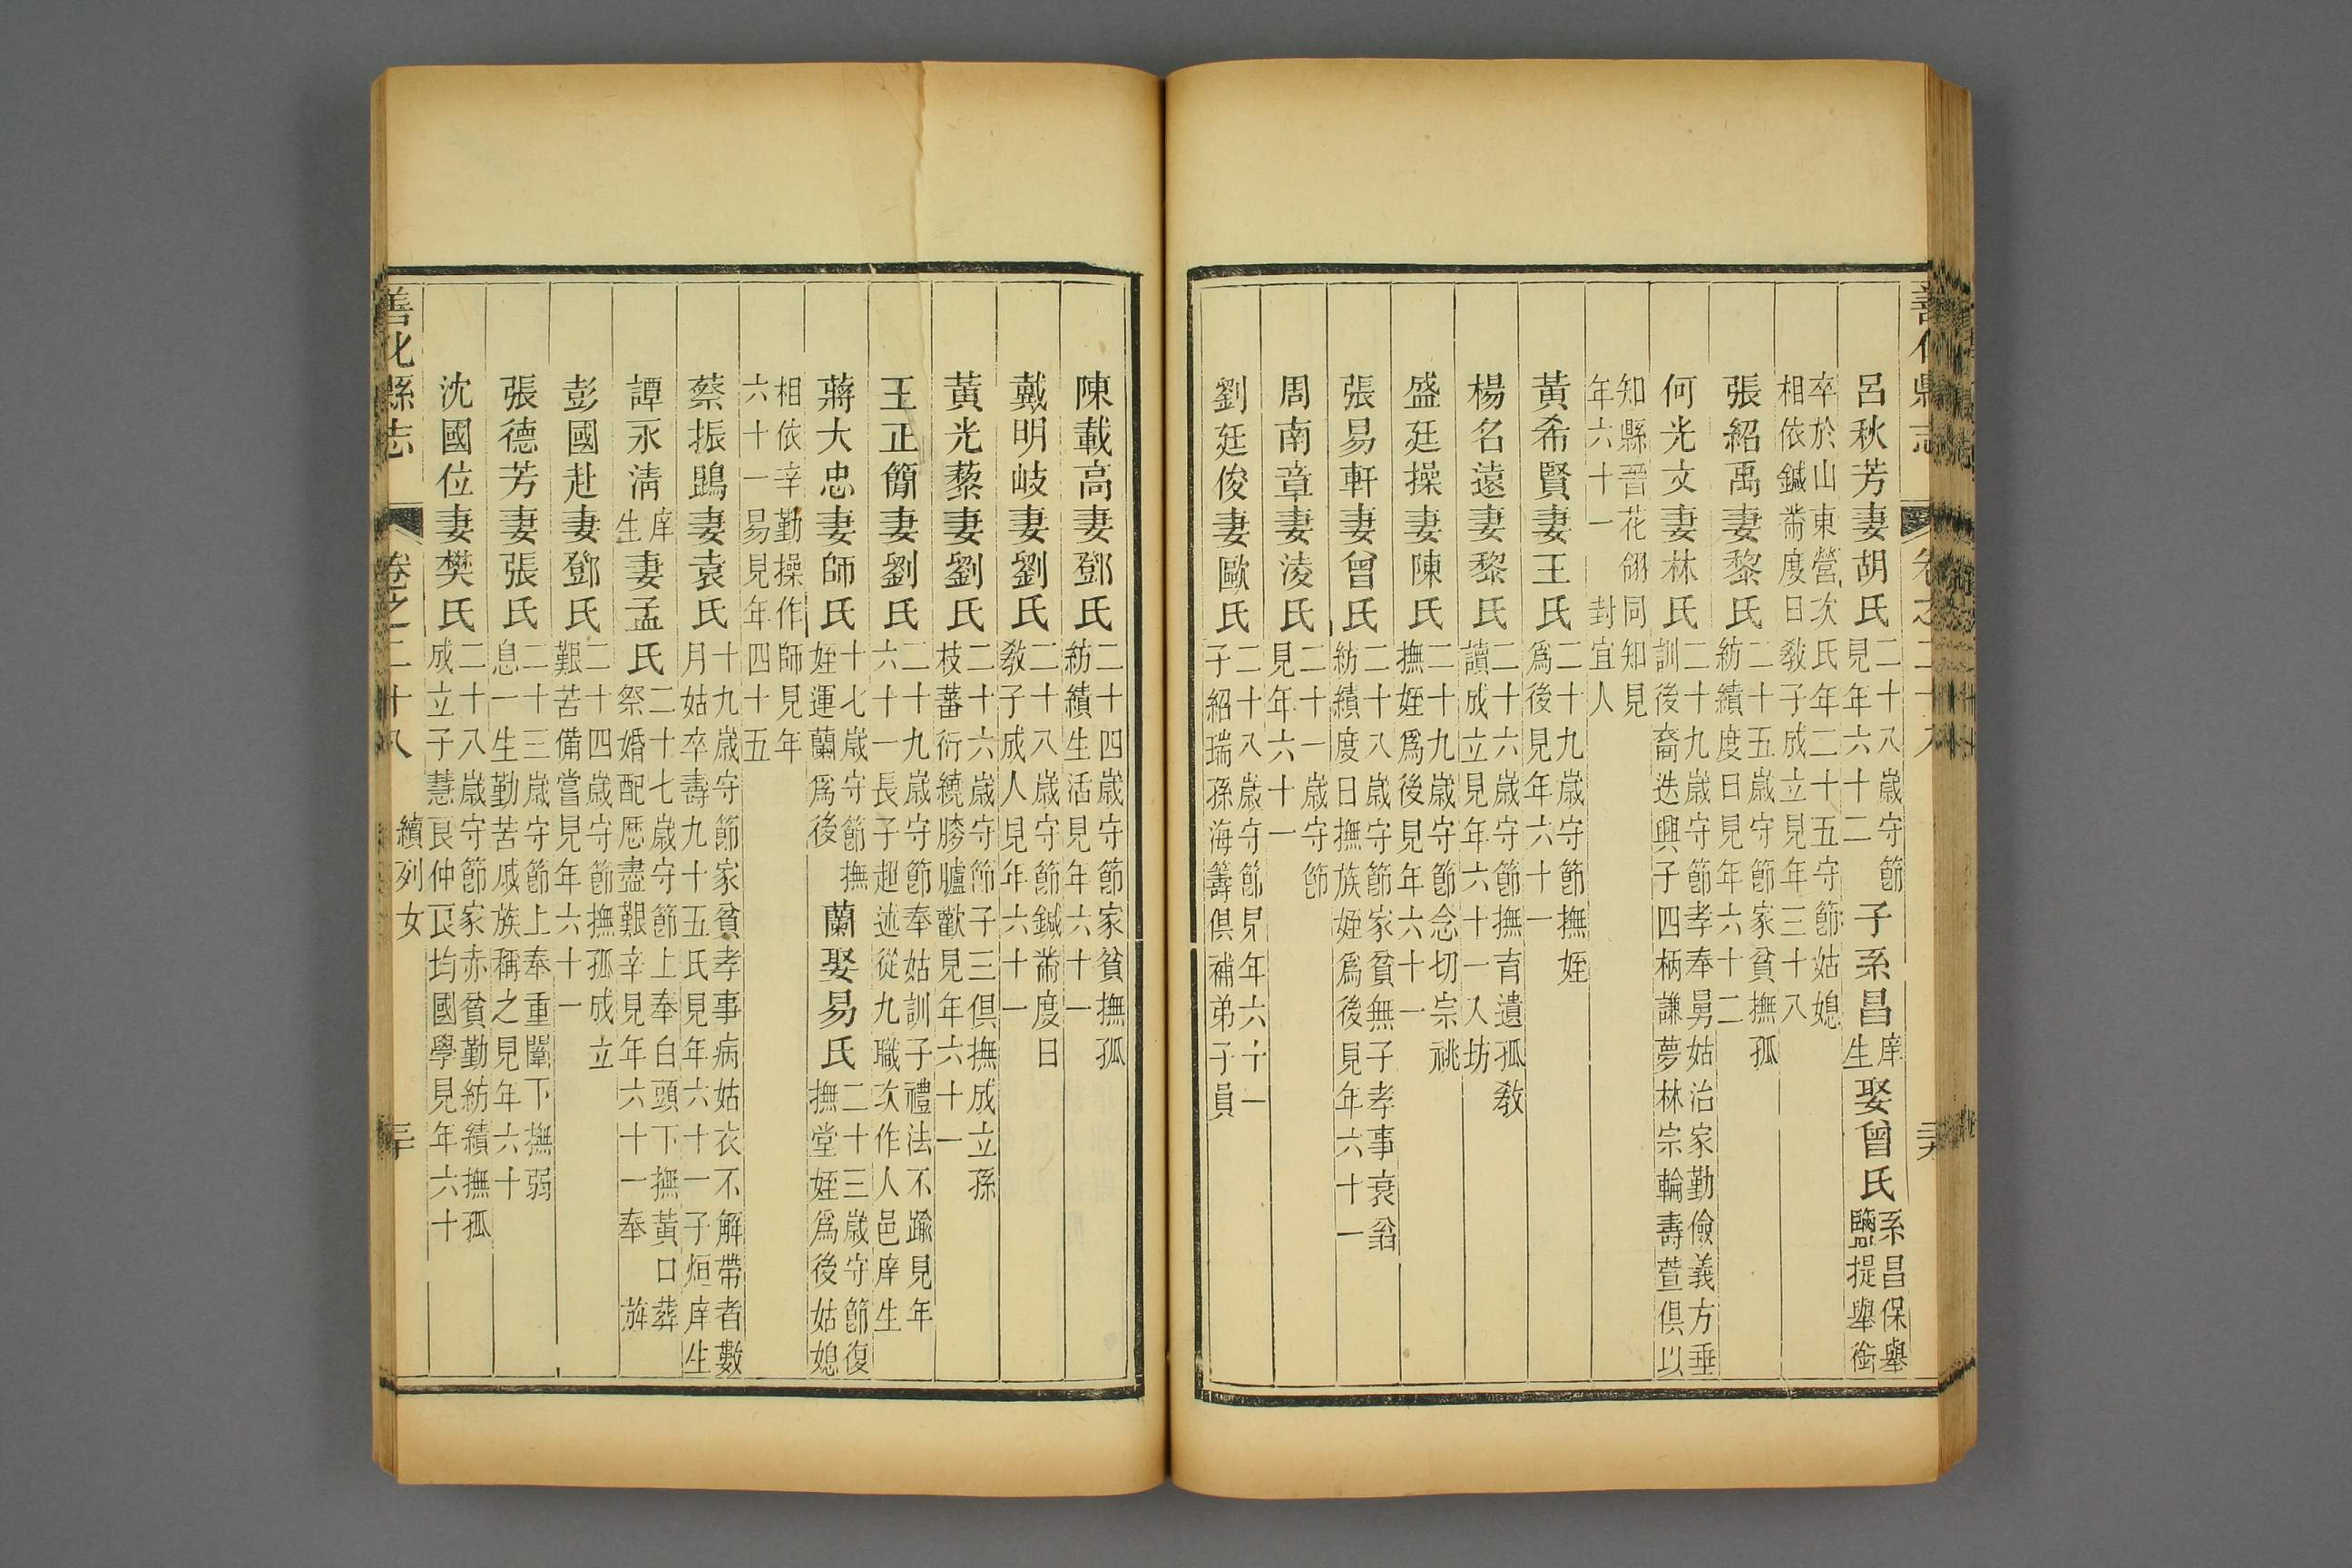 呂秋芳妻胡氏二十八歲守節見年六十二子系昌庠生娶曾氏系昌保舉鹽提舉銜
卒於山東營次氏年二十五守節姑媳相依鍼黹度日敎子成立見年三十八
張紹禹妻黎氏二十五歲守節家貧撫孤紡績度日見年六十二
何光文妻林氏二十九歲守節孝奉舅姑治家勤儉義方垂訓後裔迭興子四柄謙夢林宗輪壽萱俱以
知縣晉花翎同知見年六十一封宜人
黃希賢妻王氏二十九歲守節撫姪爲後見年六十一
楊名遠妻黎氏二十六歲守節撫育遺孤敎讀成立見年六十一入坊
盛廷操妻陳氏二十九歲守節念切宗祧撫姪爲後見年六十一
張易軒妻曾氏二十八歲守節家貧無子孝事衰翁紡績度日撫族姪爲後見年六十一
周南章妻淩氏二十一歲守節見年六十一
劉廷俊妻歐氏二十八歲守節見年六十一子紹瑞孫海籌俱補弟子員
陳載高妻鄧氏二十四歲守節家貧撫孤紡績生活見年六十一
戴明岐妻劉氏二十八歲守節鍼黹度日敎子成人見年六十一
黃光藜妻劉氏二十六歲守節子三俱撫成立孫枝蕃衍繞膝臚歡見年六十一
王正簡妻劉氏二十九歲守節奉姑訓子禮法不踰見年六十一長子超述從九職次作人邑庠生
蔣大忠妻師氏十七歲守節撫姪運蘭爲後蘭娶易氏二十三歲守節復撫堂姪爲後姑媳
相依辛勤操作師見年六十一易見年四十五
蔡振鵾妻袁氏十九歲守節家貧孝事病姑衣不解帶者數月姑卒壽九十五氏見年六十一子烜庠生
譚永淸庠生妻孟氏二十七歲守節上奉白頭下撫黃口葬祭婚配歷盡艱辛見年六十一奉旌
彭國赴妻鄧氏二十四歲守節撫孤成立艱苦備嘗見年六十一
張德芳妻張氏二十三歲守節上奉重闈下撫弱息一生勤苦戚族稱之見年六十
沈國位妻樊氏二十八歲守節家赤貧勤紡績撫孤成立子慧艮仲艮均國學見年六十
善化縣志 卷之二十八 續列女 三十